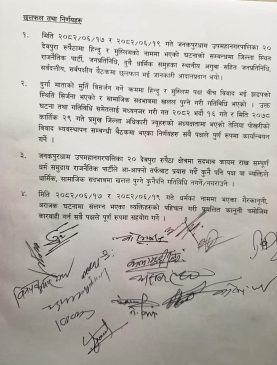 छलफल तथा निर्णयहरु
१. मिति २०८२/०६/१७ र २०८२/०६/१९ गते जनकपुरधाम उपमहानगरपालिका २०
देवपुरा रुपैठामा हिन्दु र मुस्लिमको नाममा भएको घटनाको सम्बन्धमा जिल्ला स्थित
राजनैतिक पार्टी, जनप्रतिनिधी, दुवै धार्मिक समुहका स्थानीय अगुवा सहित जनप्रतिनिधि,
सर्वदलीय, सर्वपक्षीय बैठकमा छलफल भई जानकारी आदानप्रदान भयो।
२. दुर्गा माताको मुर्ति विसर्जन गर्ने क्रममा हिन्दु र मुस्लिम पक्ष बीच विवाद भई झडपको
स्थिति सिर्जना भएको र सामाजिक सदभावमा खलल पुग्ने गरी गतिबिधी भएको । उक्त
घटना तथा गतिविधि समेतलाई मध्यनजर गरी गत २०८२ भदौ १६ गते र मिति २०७८
कार्तिक २९ गते प्रमुख जिल्ला अधिकारी ज्यूहरुको अध्यक्षतामा भएको तेलिया पोखरीको
विवाद व्यवस्थापन सम्बन्धी बैठकमा भएका निर्णयहरु सबै पक्षले पुर्ण रुपमा कार्यान्वयन
गर्ने ।
३. जनकपुरधाम उपमहानगरपालिका २० देवपुरा रुपैठा क्षेत्रमा सदभाव कायम राख्न सम्पूर्ण
धर्म समुदाय राजनैतिक पार्टीले आ-आफ्नो तर्फबाट प्रयास गर्ने कुनै पनि पक्ष वा व्यक्तिले
धार्मिक, सामाजिक सदभावमा खलल पुग्ने कुनैपनि गतिविधि नगर्ने/नगराउने ।
४. मिति २०८२/०६/१७ र २०८२/०६/१९ गते धर्मका नाममा भएका गैरकानूनी,
अराजक घटनामा संलग्न भएका व्यक्तिहरुको पहिचान गरी प्रचलित कानुनी बमोजिम
कारवाही गर्न सबै पक्षले पुर्ण रुपमा सहयोग गर्ने ।